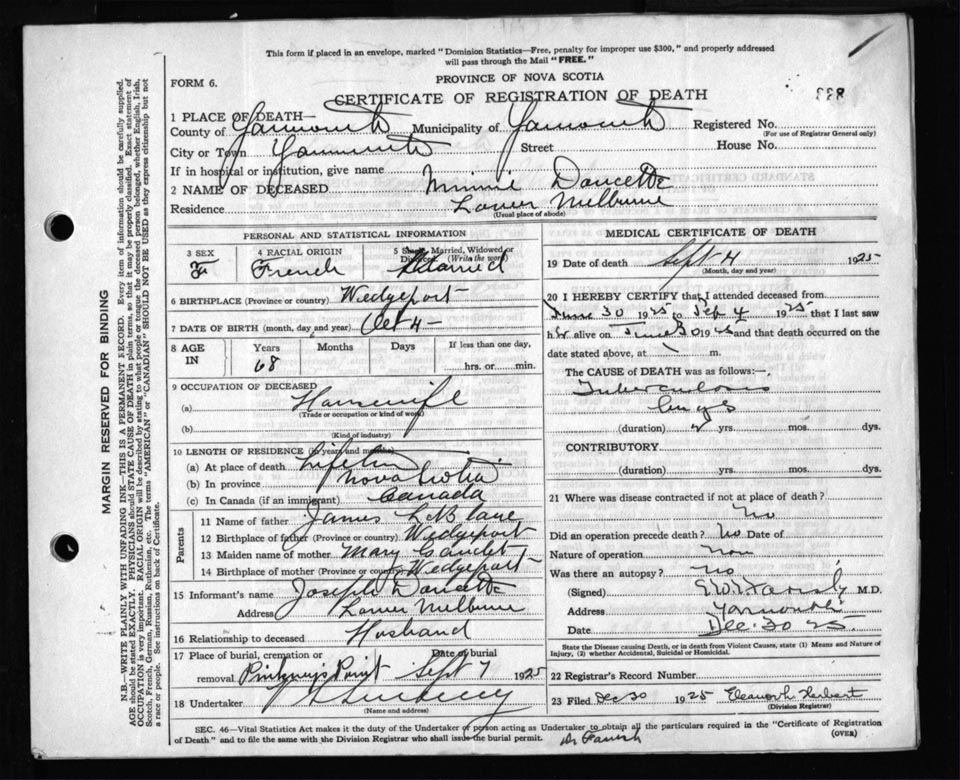 This form if placed in an envelope, marked "Dominion Statistics—Free, penalty for improper use $300," and properly addressed
will pass through the Mail "FREE."
PROVINCE OF NOVA SCOTIA
FORM 6.
CERTIFICATE OF REGISTRATION OF DEATH
338
1 PLACE OF DEATH—
County of Yarmouth Municipality of Yarmouth Registered No.
(For use of Registrar General only)
City or Town Yarmouth Street House No.
If in hospital or institution, give name
2 NAME OF DECEASED Minnie Doucette
Residence Lower Melburne
(Usual place of abode)
PERSONAL AND STATISTICAL INFORMATION
3 SEX 4 RACIAL ORIGIN 5 Single, Married, Widowed or
Divorced (Write the word)
French Married
6 BIRTHPLACE (Province or country) Wedgeport
7 DATE OF BIRTH (month, day and year) Oct 4—
8 AGE IN Years Months Days If less than one day,
68 hrs. or min.
9 OCCUPATION OF DECEASED
(a) Housewife
(Trade or occupation or kind of work)
(b)
(Kind of industry)
10 LENGTH OF RESIDENCE (in years and months)
(a) At place of death Lifetime
(b) In province Nova Scotia
(c) In Canada (if an immigrant) Canada
Parents
11 Name of father James LeBlanc
12 Birthplace of father (Province or country) Wedgeport
13 Maiden name of mother Mary Gaudet
14 Birthplace of mother (Province or country) Wedgeport
15 Informant's name Joseph Doucette
Address Lower Melburne
16 Relationship to deceased Husband
17 Place of burial, cremation or Date of burial
removal Pinkneys Point Sept 7 1925
18 Undertaker
(Name and address)
MEDICAL CERTIFICATE OF DEATH
19 Date of death Sept 4 1925
(Month, day and year)
20 I HEREBY CERTIFY that I attended deceased from
June 30 1925 to Sep 4 1925 that I last saw
her alive on June 30 1925 and that death occurred on
date stated above, at m.
The CAUSE OF DEATH was as follows:—
Tuberculosis
lungs
(duration) 2 yrs. mos. dys.
CONTRIBUTORY
(duration) yrs. mos. dys.
21 Where was disease contracted if not at place of death?
No
Did an operation precede death? No Date of
Nature of operation None
Was there an autopsy? No
(Signed) Farish M.D.
Address Yarmouth
Date Dec. 30 25
State the Disease causing Death, or in death from Violent Causes, state (1) Means and Nature of
Injury, (2) whether Accidental, Suicidal or Homicidal.
22 Registrar's Record Number
23 Filed Dec 30 1925 Eleanor L. Herbert
(Division Registrar)
SEC. 46—Vital Statistics Act makes it the duty of the Undertaker or person acting as Undertaker to obtain all the particulars required in the "Certificate of Registration
of Death" and to file the same with the Division Registrar who shall issue the burial permit. (OVER)
Dr Farish
MARGIN RESERVED FOR BINDING
N.B.—WRITE PLAINLY WITH UNFADING INK—THIS IS A PERMANENT RECORD. Every item of information should be carefully supplied.
AGE should be stated EXACTLY. PHYSICIANS should STATE CAUSE OF DEATH in plain terms, so that it may be properly classified. Exact statement of
OCCUPATION is very important. RACIAL ORIGIN will be described by stating to what people or tongue the deceased person belonged, whether English, Irish,
Scotch, French, German, Russian, Ruthenian, etc. The terms "AMERICAN" or "CANADIAN" SHOULD NOT BE USED as they express citizenship but not
a race or people. See instructions on back of Certificate.